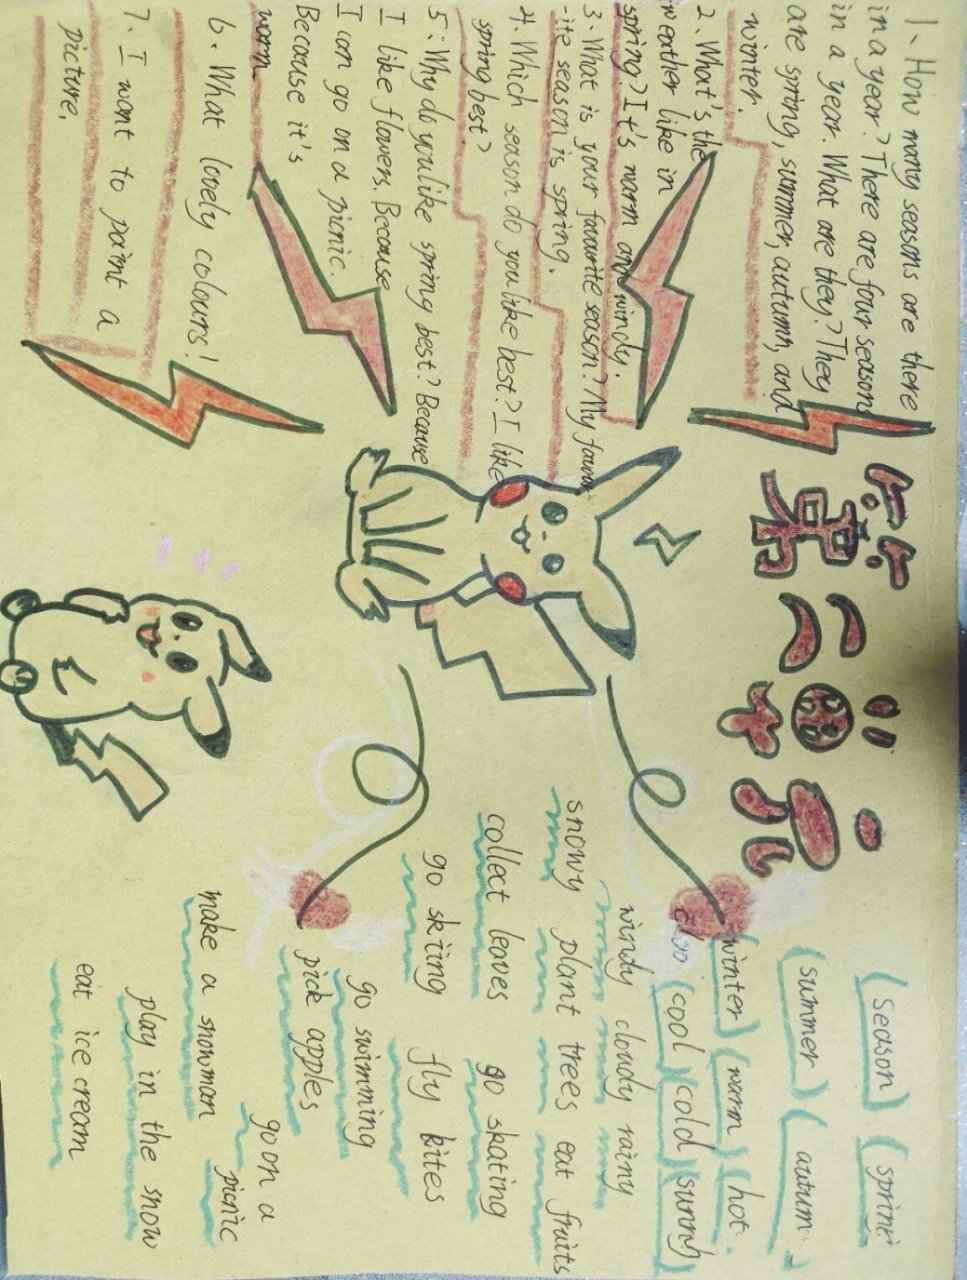 1. How many seasons are there
in a year? There are four seasons
in a year. What are they? They
are spring, summer, autumn, and
winter.
2. What's the
weather like in
spring? It's warm and windy.
3. What is your favourite season? My favour
-ite season is spring.
4. Which season do you like best? I like
spring best?
5. Why do you like spring best? Because
I like flowers. Because
I can go on a picnic.
Because it's
warm
6. What lovely colours!
7. I want to paint a
picture.
第二单元
(season) (spring
(summer) (autum
(winter) (warm) (hot
(cool) (cold) (sunny)
windy cloudy rainy
snowy plant trees eat fruits
collect leaves go skating
go skiing fly kites
go swimming
pick apples
go on a
picnic
make a snowman
play in the snow
eat ice cream